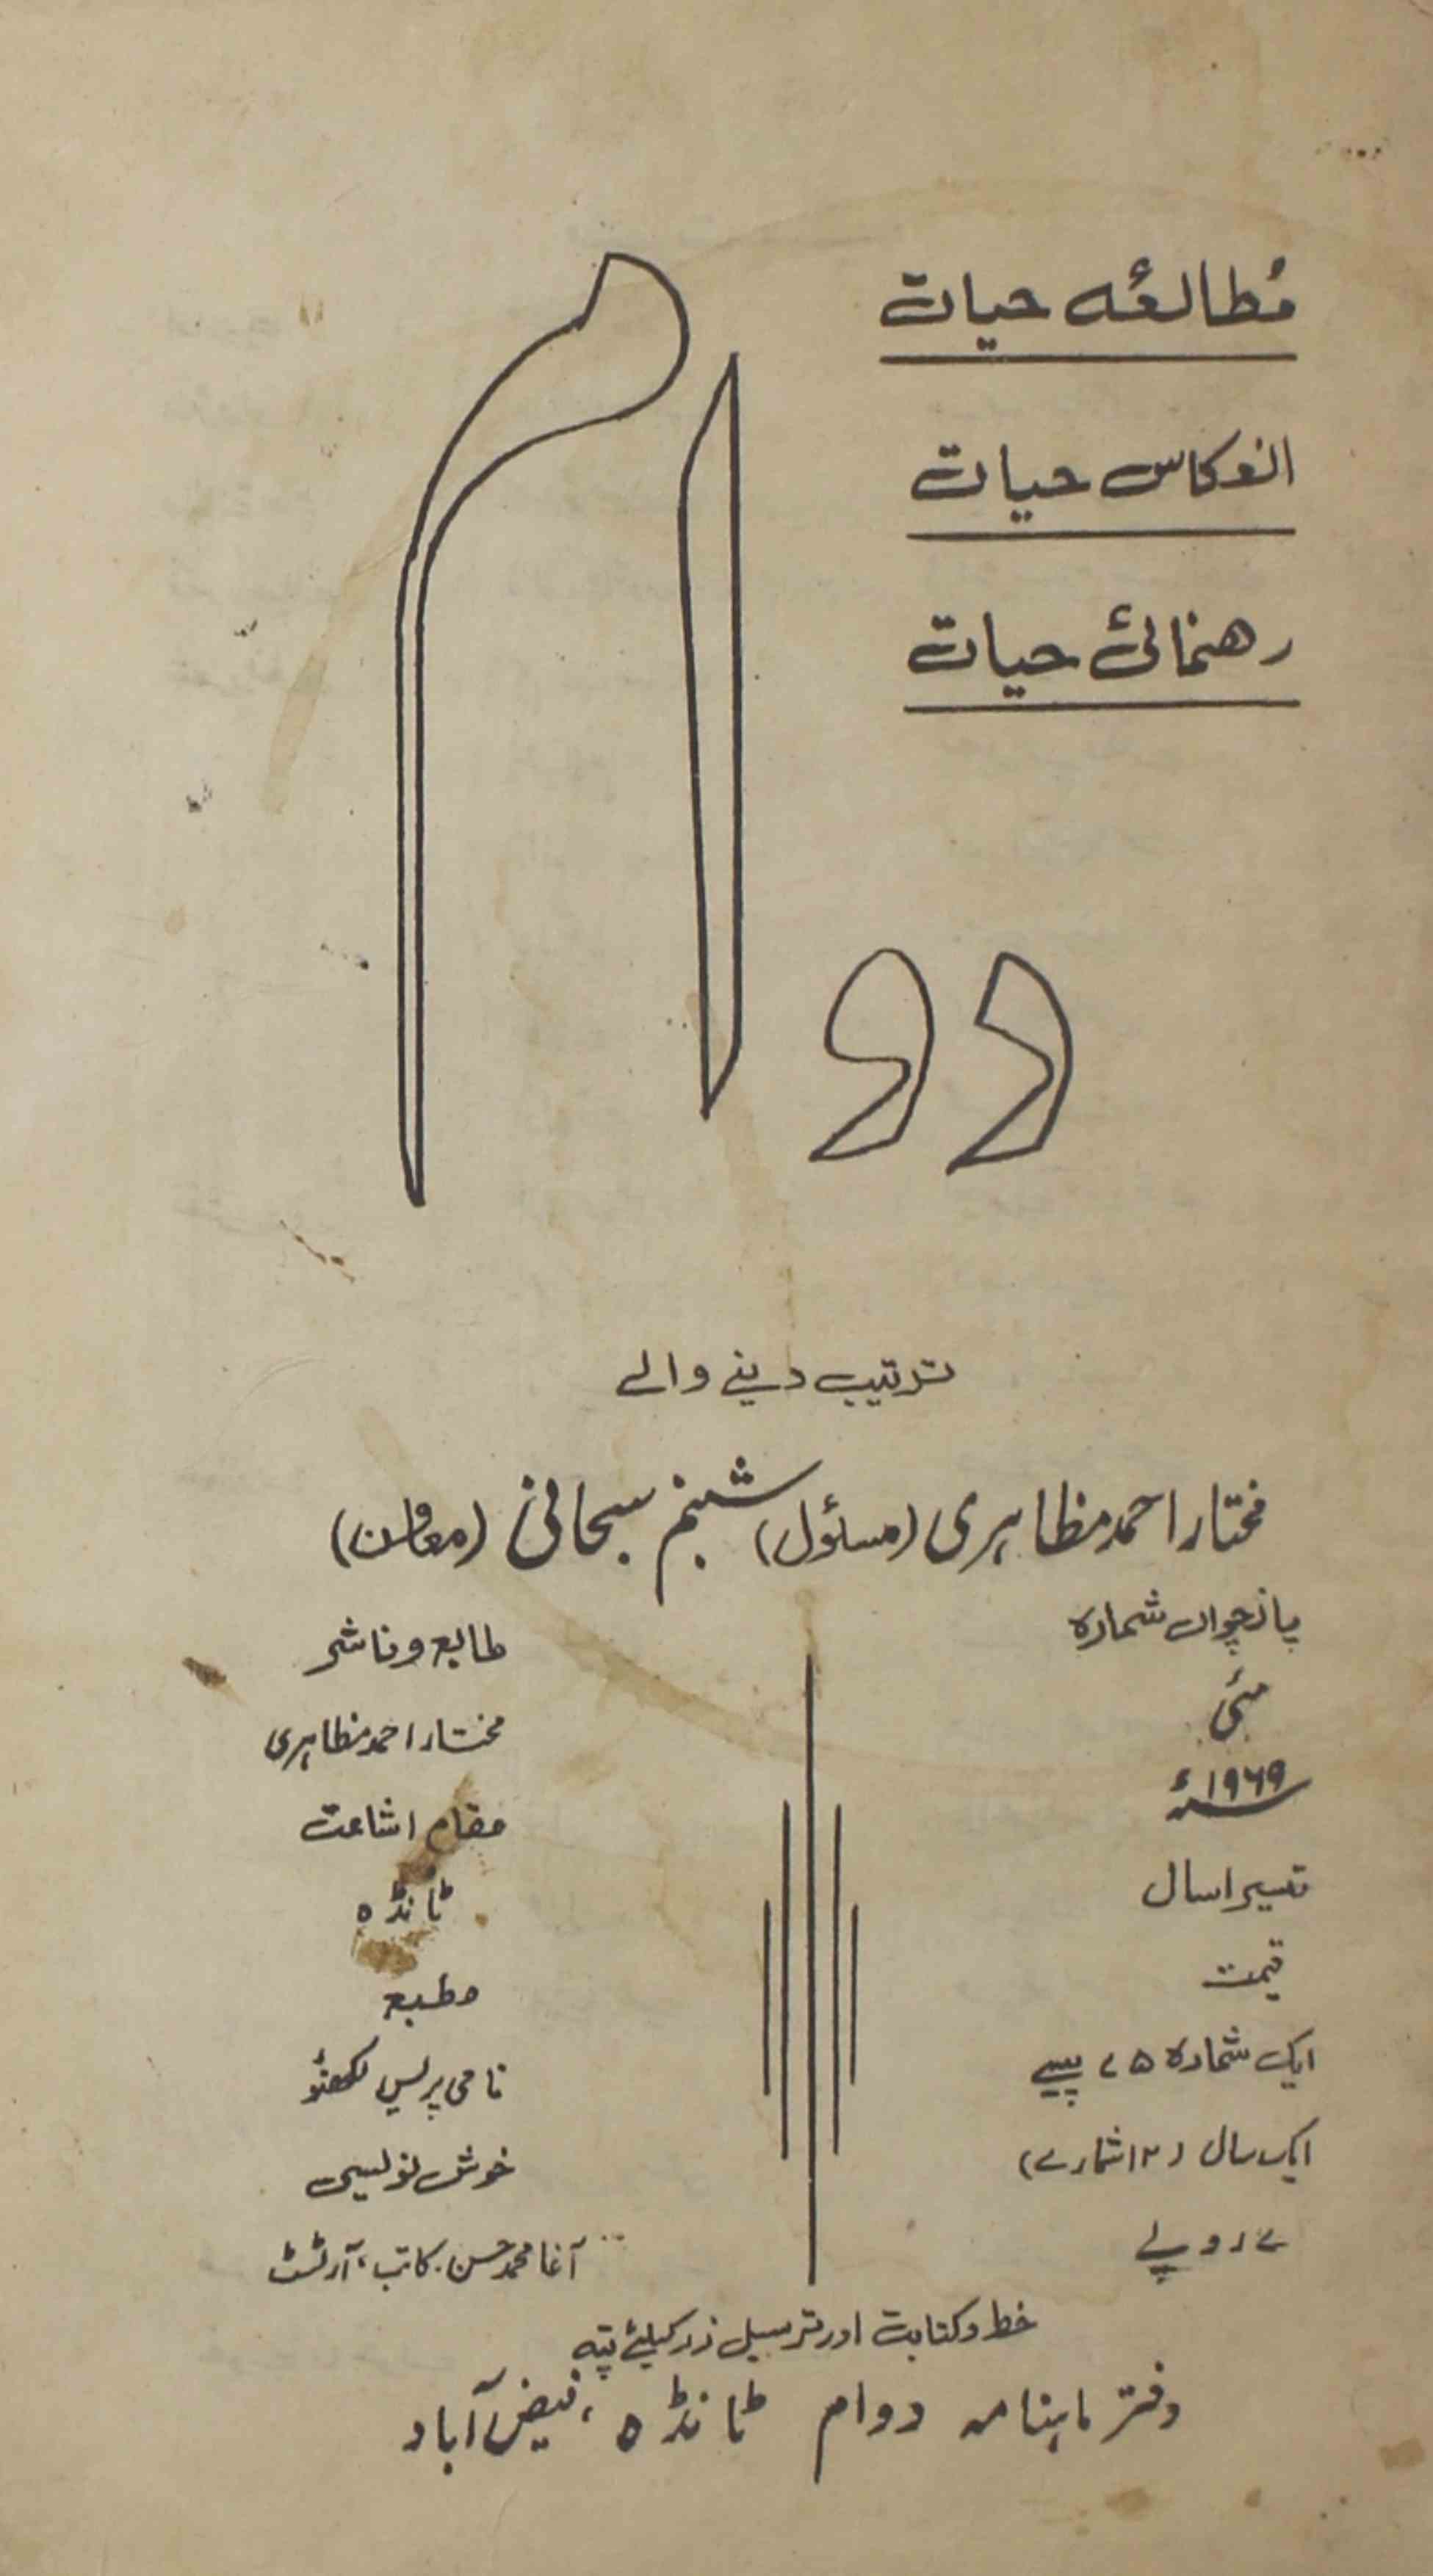 مُطالعۂ حیات
انعکاس حیات
رھنمائ حیات
دوام
ترتیب دینے والے
مختار احمد مظاہری (مسئول) شبنم سبحانی (معاون)
پانچواں شمارہ
مئی
۱۹۶۹ء
تیسرا سال
قیمت
ایک شمارہ ۷۵ پیسے
ایک سال (۱۲ شمارے)
۷ روپے
طابع و ناشر
مختار احمد مظاہری
مقام اشاعت
ٹانڈہ
مطبع
نامی پریس لکھنؤ
خوش نویسی
آغا محمد حسن کاتب، آرٹسٹ
خط و کتابت اور ترسیل زر کیلئے پتہ
دفتر ماہنامہ دوام ٹانڈہ، فیض آباد